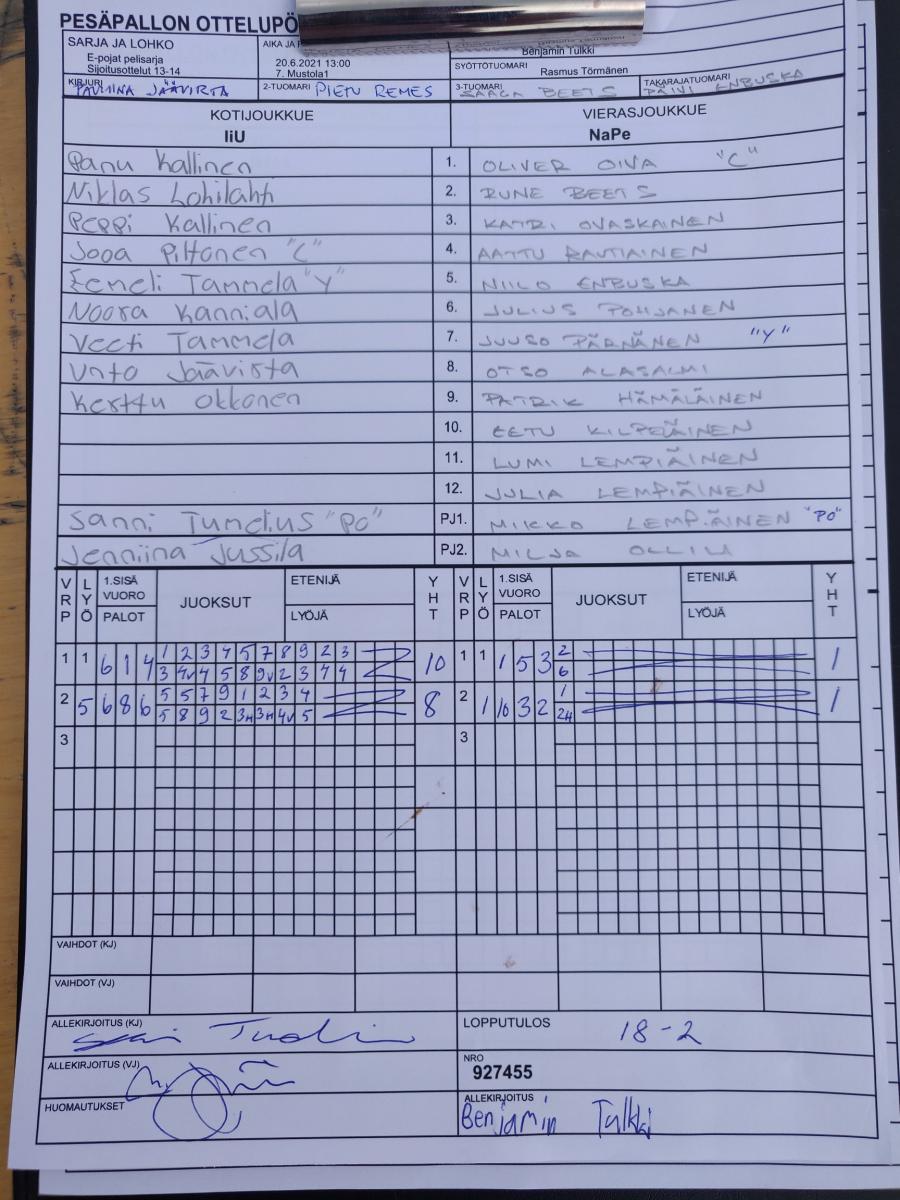 PESÄPALLON OTTELUPÖ
SARJA JA LOHKO
E-pojat pelisarja
Sijoitusottelut 13-14
AIKA JA
20.6.2021 13:00
7. Mustola1
Benjamin Tulkki
SYÖTTÖTUOMARI
Rasmus Törmänen
KIRJURI JÄÄVIRTA
2-TUOMARI PIETU REMES
3-TUOMARI SAAGA BEETS
TAKARAJATUOMARI PÄIVI ENBUSKA
KOTIJOUKKUE
IiU
VIERASJOUKKUE
NaPe
Panu Kallinen 1. OLIVER OIVA "C"
Niklas Lohilahti 2. RUNE BEETS
Peppi Kallinen 3. KATRI OVASKAINEN
Jooa Piltonen "C" 4. AATTU RAUTIAINEN
Eemeli Tammela "Y" 5. NIILO ENBUSKA
Noora Kanniala 6. JULIUS POHJANEN
Veeti Tammela 7. JUUSO PÄRNÄNEN "Y"
Unto Jäävirta 8. OTSO ALASALMI
Kerttu Okkonen 9. PATRIK HÄMÄLÄINEN
10. EETU KILPELÄINEN
11. LUMI LEMPIÄINEN
12. JULIA LEMPIÄINEN
Sanni "PO" PJ1. MIKKO LEMPIÄINEN "PO"
Jenniina Jussila PJ2. MILJA OLLILA
VRP LYÖ 1.SISÄ VUORO PALOT JUOKSUT ETENIJÄ LYÖJÄ YHT VRP LYÖ 1.SISÄ VUORO PALOT JUOKSUT ETENIJÄ LYÖJÄ YHT
1 1 6 1 4 1 2 3 4 5 7 8 9 2 3 10 1 1 1 5 3 2 1
3 4v 4 5 8 9v 2 3 4 4 6
2 5 6 8 6 5 5 7 9 1 2 3 4 8 2 1 10 3 2 1 1
5 8 9 2 3H 3H 4v 5 2H
3 3
VAIHDOT (KJ)
VAIHDOT (VJ)
ALLEKIRJOITUS (KJ)
LOPPUTULOS 18-2
ALLEKIRJOITUS (VJ)
NRO
927455
HUOMAUTUKSET
ALLEKIRJOITUS
Benjamin Tulkki